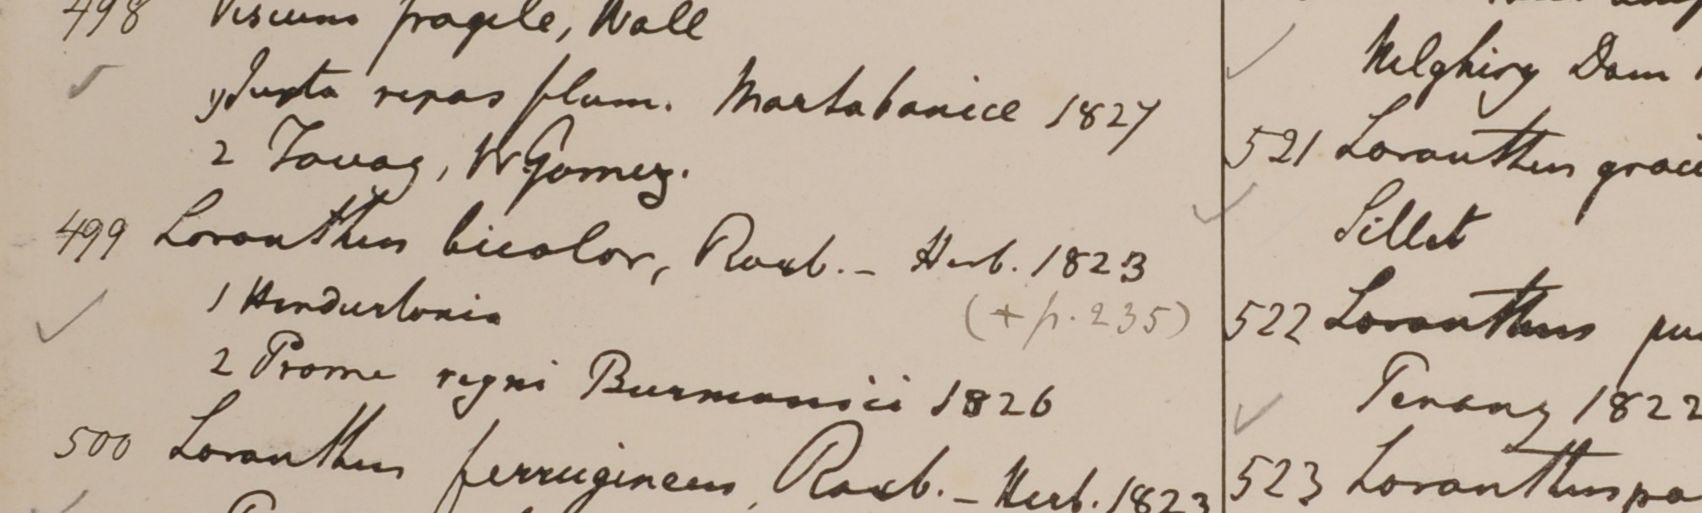 498 Viscum fragile, Wall
1 Juxta ripas flum. Martabanice 1827
2 Tavoy, WGomez.
499 Loranthus bicolor, Roxb. - Herb. 1823
1 Hindustonia
(+ p. 235)
2 Prome regni Burmanici 1826
500 Loranthus ferrugineus, Roxb. - Herb. 1823
Nelghiry Dom
521 Loranthus graci
Sillet
522 Loranthus pu
Penang 1822
523 Loranthus pa